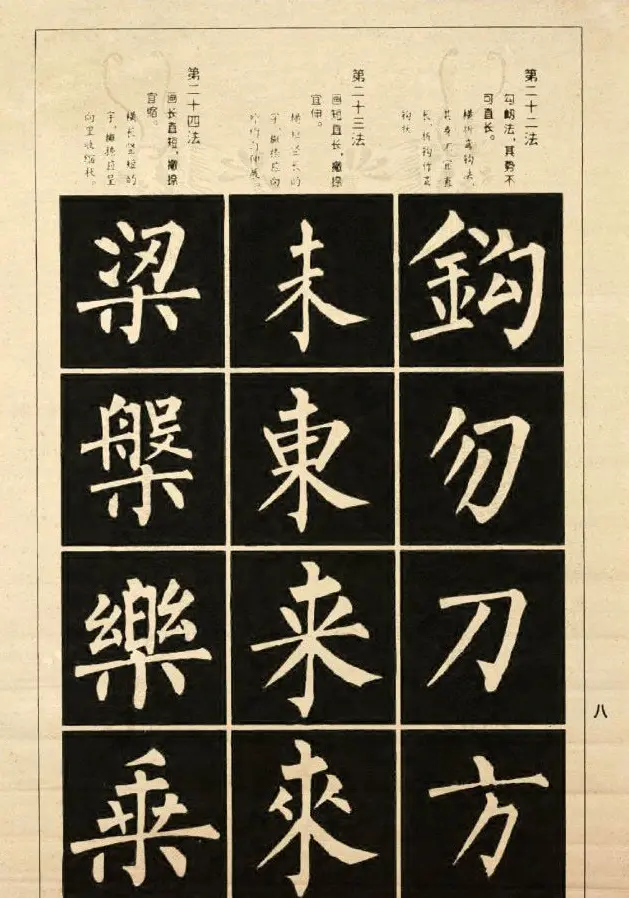 第二十二法
勾努法，其势不
可直长。
其身不宜直
钩状
鈎
勿
刀
方
第二十三法
画短直长，撇捺
宜伸。
横短竖长的
字，撇捺应向
伸展。
未
東
来
來
第二十四法
画长直短，撇捺
宜缩。
横长竖短的
字，撇捺应呈
向里收缩状。
梁
槃
樂
乗
八